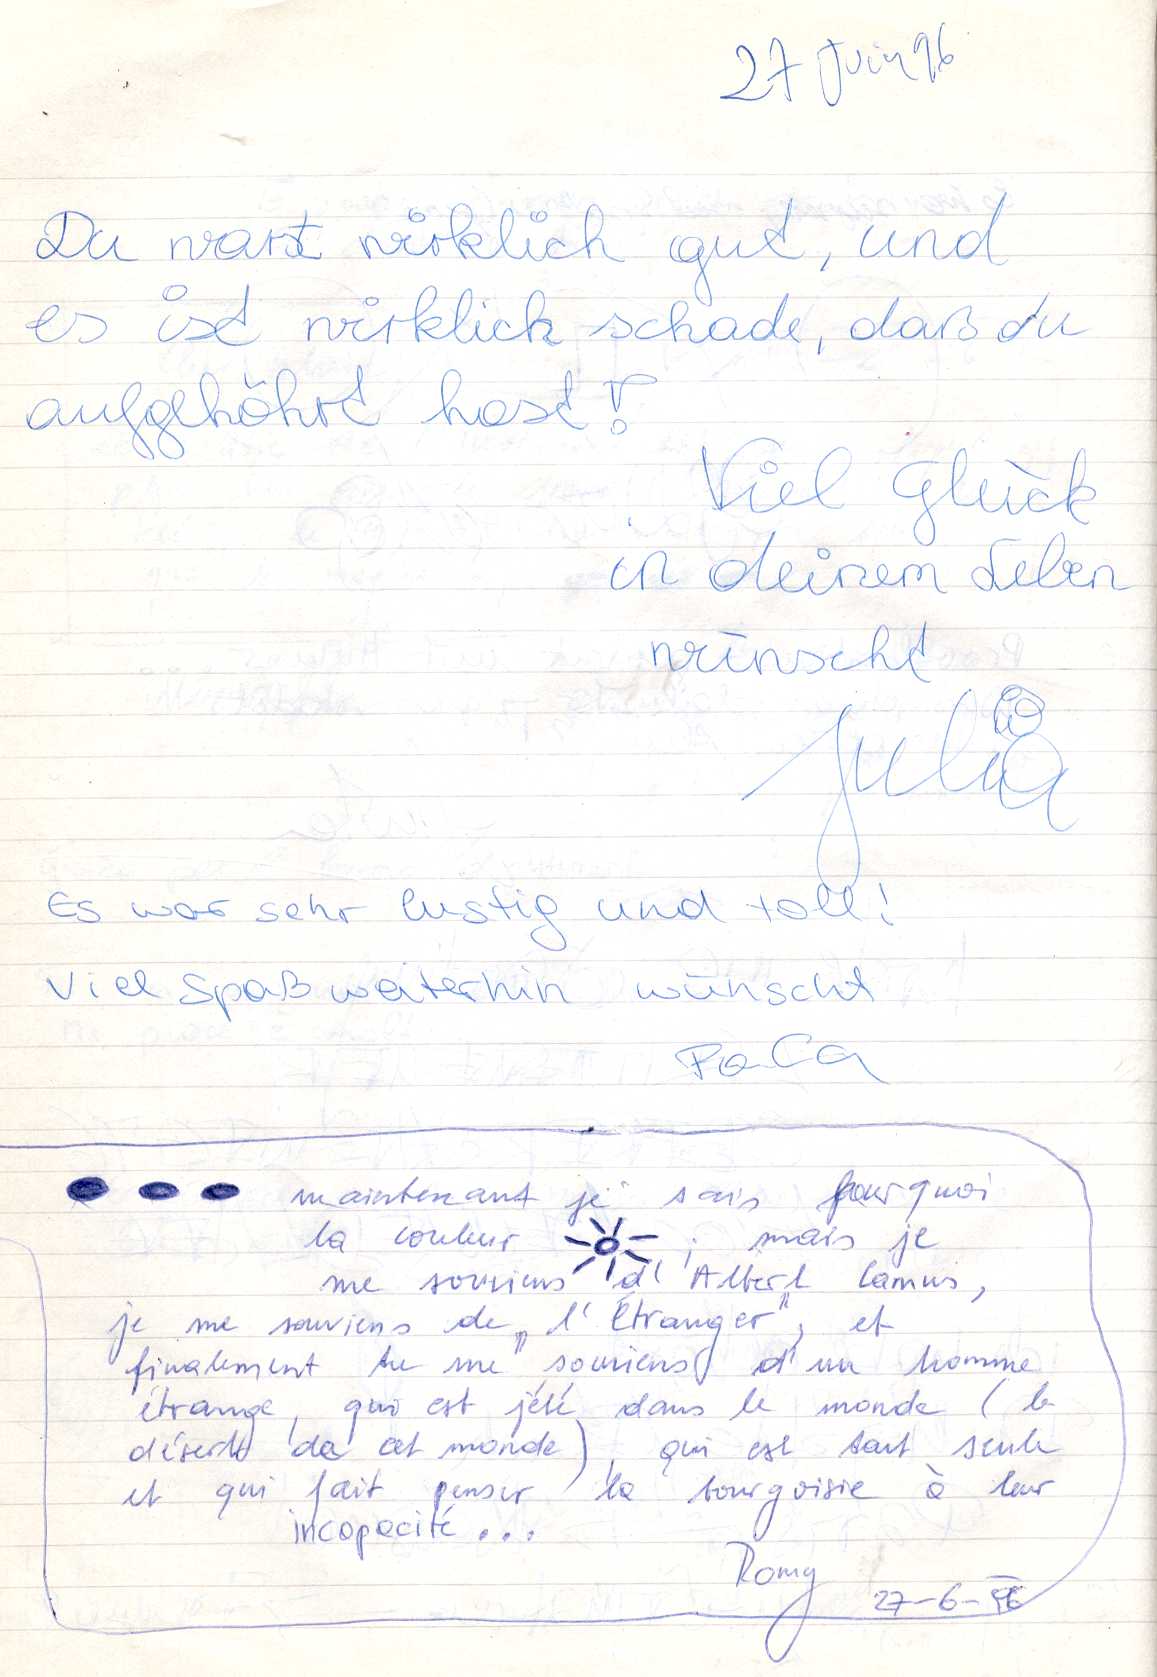 27 Juin 96
Du warst wirklich gut, und
es ist wirklick schade, daß du
aufgehöhrt hast!
Viel Glück
in deinem Leben
wünscht
Julia
Es war sehr lustig und toll!
Viel Spaß weiterhin wünscht
maintenant je sais pourquoi
la couleur ; mais je
me souviens d'Albert Camus,
je me souviens de „l'Étranger", et
finalement tu me souviens d'un homme
étrange, qui est jété dans le monde (le
désert de cet monde), qui est tout seule
et qui fait penser la bourgoisie à leur
incapacité...
Romy
27-6-96